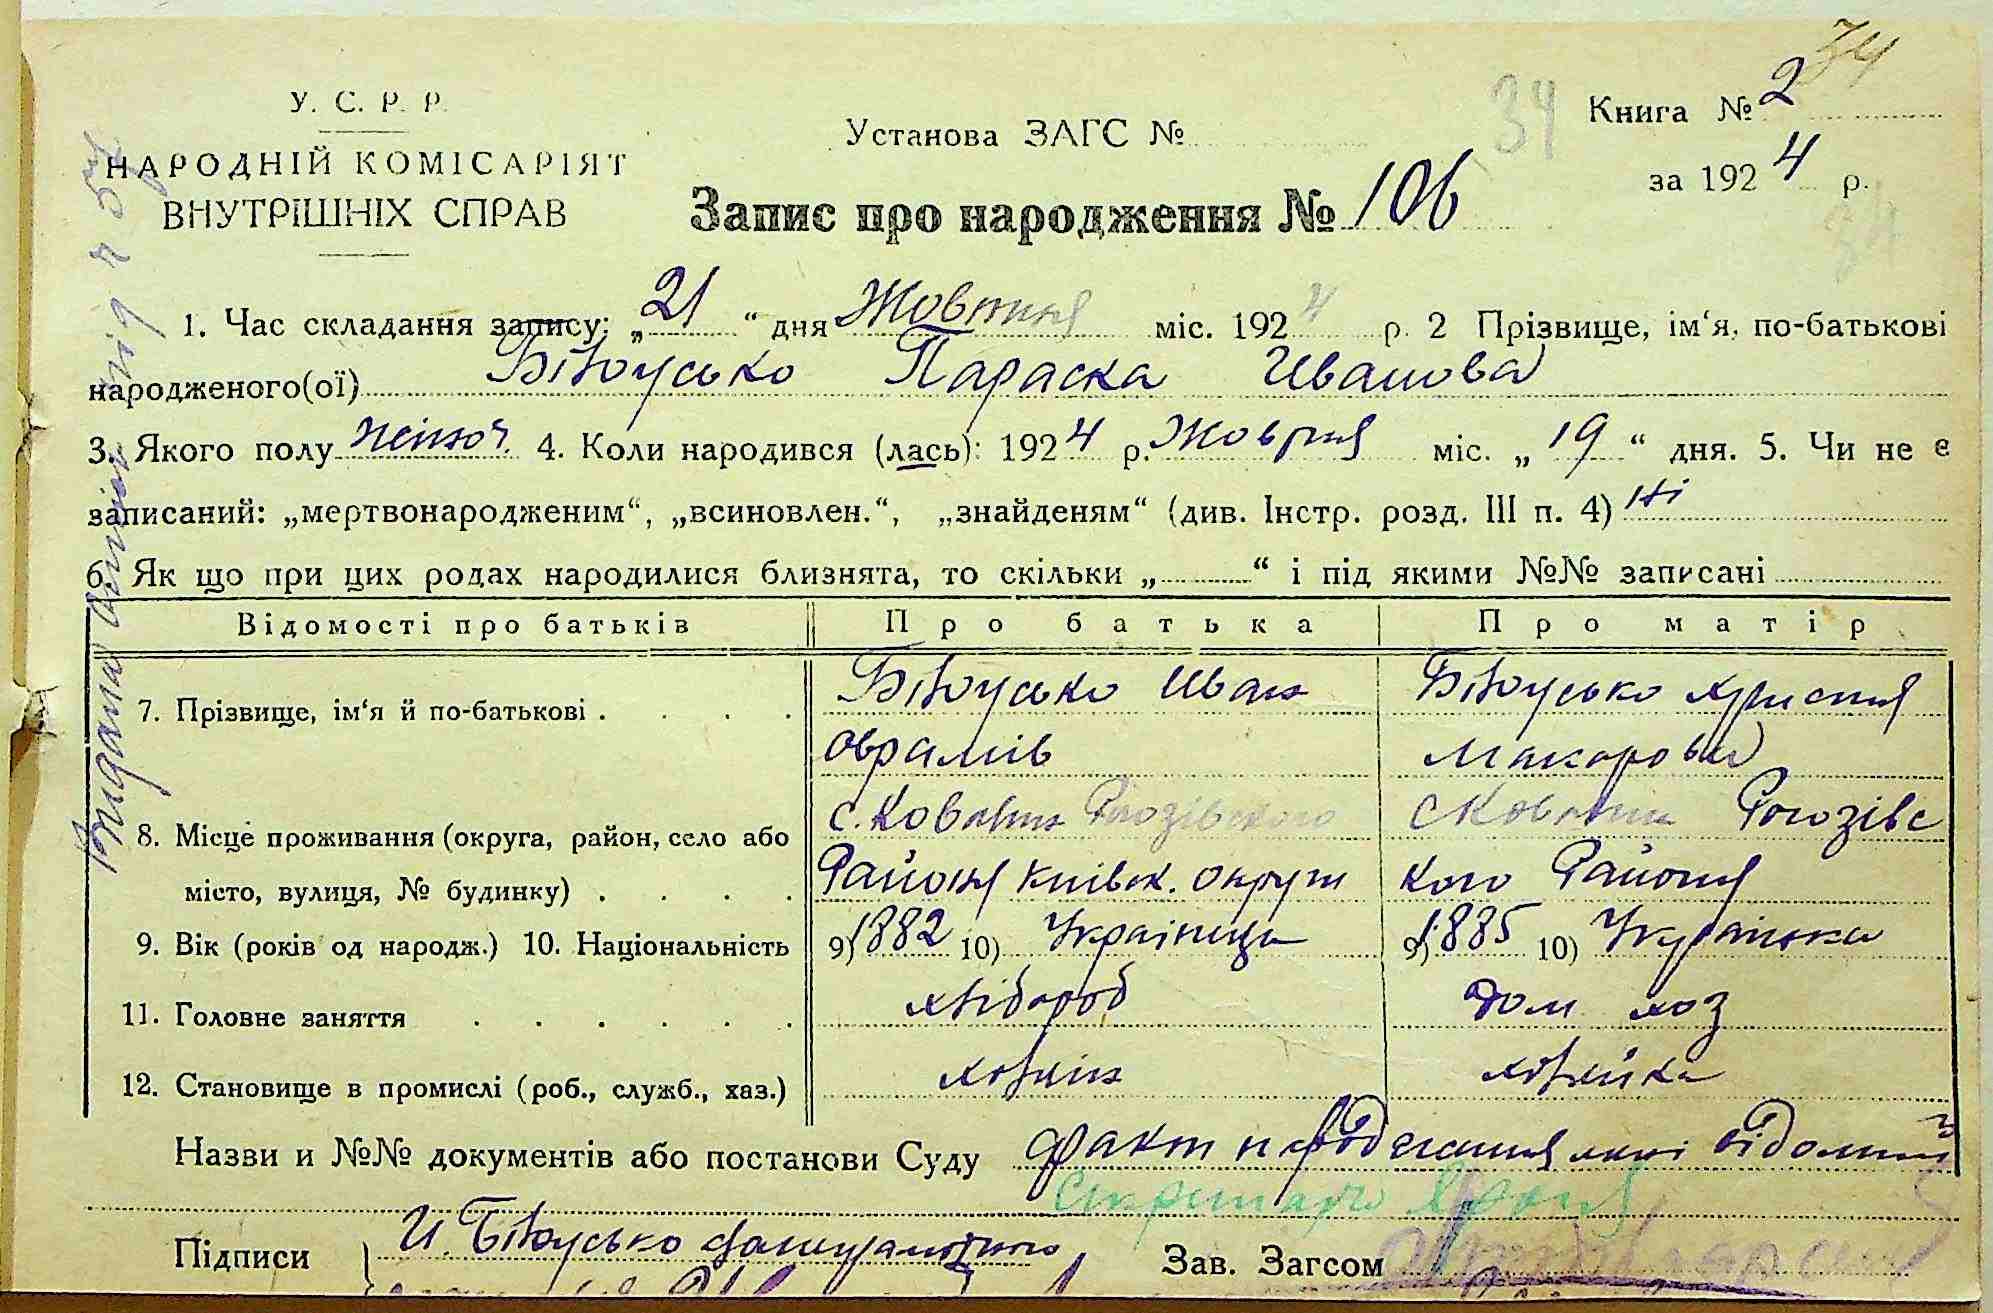 34
У. С. Р. Р.
НАРОДНІЙ КОМІСАРІЯТ
ВНУТРІШНІХ СПРАВ
Установа ЗАГС №
34
Книга № 2
за 1924 р.
34
Запис про народження № 106
1. Час складання запису: „21“ дня Жовтня міс. 1924 р. 2 Прізвище, ім‘я, по-батькові
народженого(ої) Білоусько Параска Иванова
3. Якого полу жіноч. 4. Коли народився (лась): 1924 р. Жовтня міс. „19“ дня. 5. Чи не є
записаний: „мертвонародженим“, „всиновлен.“, „знайденям“ (див. Інстр. розд. III п. 4) Ні
6. Як що при цих родах народилися близнята, то скільки „ “ і під якими №№ записані
Відомості про батьків Про батька Про матір
7. Прізвище, ім‘я й по-батькові . . . . Білоусько Иван Білоусько Христя
Оврамів Макарова
8. Місце проживання (округа, район, село або с. Ковалин Рогозівского с Ковалин Рогозівс
місто, вулиця, № будинку) . . . . Района Київск. округи кого Района
9. Вік (років од народж.) 10. Національність 9) 1882 10) Українець 9) 1885 10) Українка
11. Головне заняття . . . . . . хлібороб дом хоз
12. Становище в промислі (роб., служб., хаз.) хозяин хозяйка
Назви и №№ документів або постанови Суду факт народження мені відомий
Секретарь
Підписи И. Білоусько
Зав. Загсом
Видана